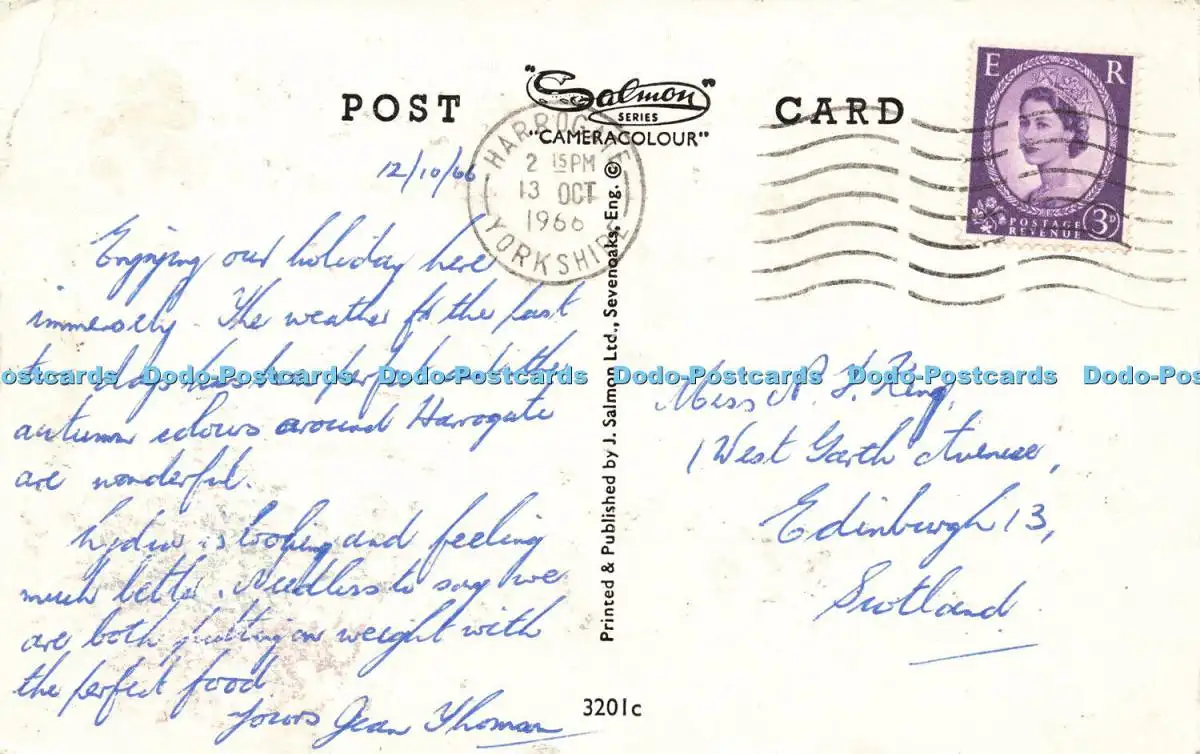 POST "Salmon" CARD
SERIES
"CAMERACOLOUR"
E R
POSTAGE
REVENUE 3D
HARROGATE
2 15PM
13 OCT
1966
YORKSHIRE
12/10/66
Enjoying our holiday here
immensely. The weather for the last
two days has been perfect and the
autumn colours around Harrogate
are wonderful.
Lydia is looking and feeling
much better. Needless to say we
are both putting on weight with
the perfect food.
Yours Jean
Printed & Published by J. Salmon Ltd., Sevenoaks, Eng. ©
3201c
Miss A. King,
1 West Garth Avenue,
Edinburgh 13,
Scotland
Dodo-Postcards Dodo-Postcards Dodo-Postcards Dodo-Postcards Dodo-Postcards Dodo-Postcards